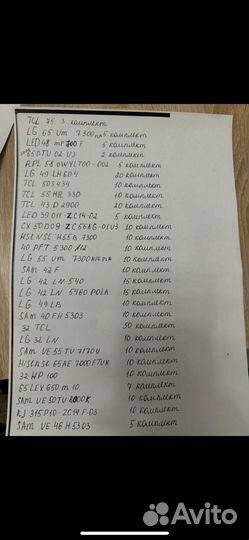 TCL 75 3 комплект
LG 65 UM 7300 5 комплект
LED48 5 комплект
85DTU 02 U3 2 комплект
RPL 58 0WYLT00-002 5 комплект
LG 49 LH604 20 комплект
TCL 50S434 10 комплект
TCL 55HR 330 10 комплект
TCL 43 D2900 20 комплект
LED 39 D11-ZC14-02 5 комплект
CX 50D09-ZC56AG-01 10 комплект
HISENSE H55B 7300 10 комплект
40 PFT 5300/12 10 комплект
LG 55 UM 7300 10 комплект
SAM 42 F 10 комплект
LG 42 LN 540 15 комплект
LG 42 LN 5460 POLA 15 комплект
LG 49 LB 10 комплект
SAM 40 FH 5303 10 комплект
32 TCL 50 комплект
LG 32 LN 10 комплект
SAM UE 55 TU 7170U 10 комплект
HISENSE 65AE 7000FTUK 10 комплект
32 HP 100 10 комплект
65LEX 650 m 10 7 комплект
SAM UE 50TU 10 комплект
KJ 315D10-ZC14F-03 10 комплект
SAM UE 46 H5303 5 комплект
Avito